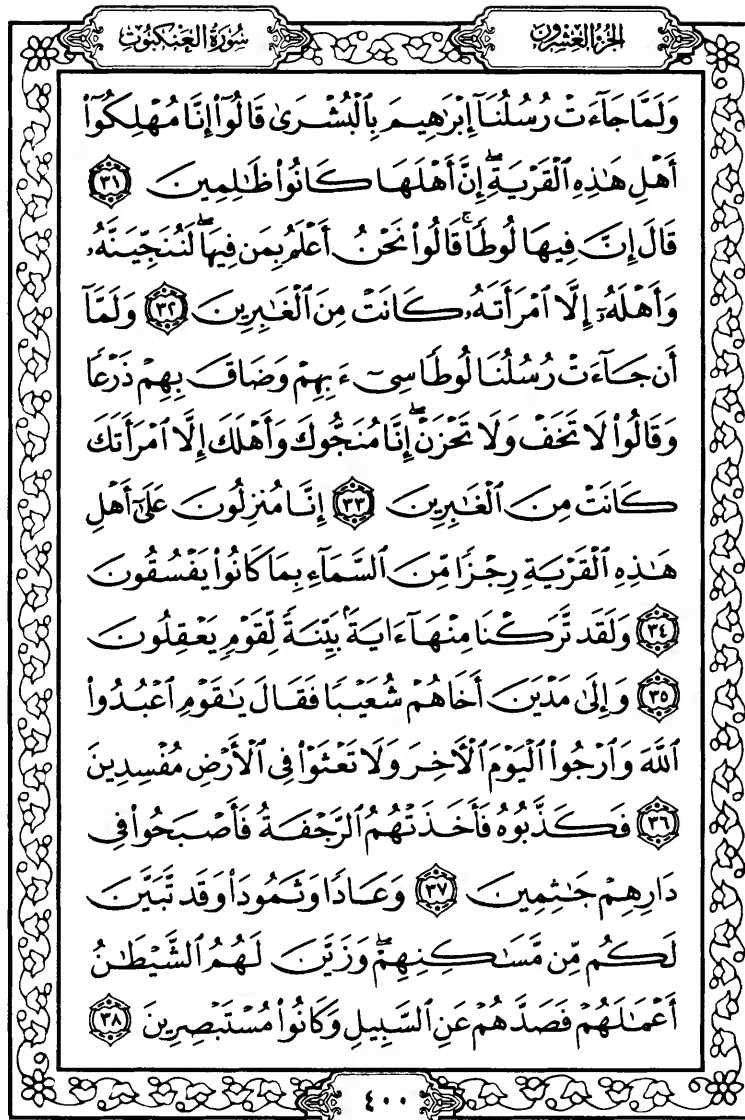 الجزء العشرون
سورة العنكبوت
وَلَمَّا جَآءَتْ رُسُلُنَآ إِبْرَٰهِيمَ بِٱلْبُشْرَىٰ قَالُوٓا۟ إِنَّا مُهْلِكُوٓا۟
أَهْلِ هَٰذِهِ ٱلْقَرْيَةِ ۖ إِنَّ أَهْلَهَا كَانُوا۟ ظَٰلِمِينَ ٣١
قَالَ إِنَّ فِيهَا لُوطًا ۚ قَالُوا۟ نَحْنُ أَعْلَمُ بِمَن فِيهَا ۖ لَنُنَجِّيَنَّهُۥ
وَأَهْلَهُۥٓ إِلَّا ٱمْرَأَتَهُۥ كَانَتْ مِنَ ٱلْغَٰبِرِينَ ٣٢ وَلَمَّآ
أَن جَآءَتْ رُسُلُنَا لُوطًا سِىٓءَ بِهِمْ وَضَاقَ بِهِمْ ذَرْعًا
وَقَالُوا۟ لَا تَخَفْ وَلَا تَحْزَنْ ۖ إِنَّا مُنَجُّوكَ وَأَهْلَكَ إِلَّا ٱمْرَأَتَكَ
كَانَتْ مِنَ ٱلْغَٰبِرِينَ ٣٣ إِنَّا مُنزِلُونَ عَلَىٰٓ أَهْلِ
هَٰذِهِ ٱلْقَرْيَةِ رِجْزًا مِّنَ ٱلسَّمَآءِ بِمَا كَانُوا۟ يَفْسُقُونَ
٣٤ وَلَقَد تَّرَكْنَا مِنْهَآ ءَايَةًۢ بَيِّنَةً لِّقَوْمٍ يَعْقِلُونَ
٣٥ وَإِلَىٰ مَدْيَنَ أَخَاهُمْ شُعَيْبًا فَقَالَ يَٰقَوْمِ ٱعْبُدُوا۟
ٱللَّهَ وَٱرْجُوا۟ ٱلْيَوْمَ ٱلْأَخِرَ وَلَا تَعْثَوْا۟ فِى ٱلْأَرْضِ مُفْسِدِينَ
٣٦ فَكَذَّبُوهُ فَأَخَذَتْهُمُ ٱلرَّجْفَةُ فَأَصْبَحُوا۟ فِى
دَارِهِمْ جَٰثِمِينَ ٣٧ وَعَادًا وَثَمُودَا۟ وَقَد تَّبَيَّنَ
لَكُم مِّن مَّسَٰكِنِهِمْ ۖ وَزَيَّنَ لَهُمُ ٱلشَّيْطَٰنُ
أَعْمَٰلَهُمْ فَصَدَّهُمْ عَنِ ٱلسَّبِيلِ وَكَانُوا۟ مُسْتَبْصِرِينَ ٣٨
٤٠٠